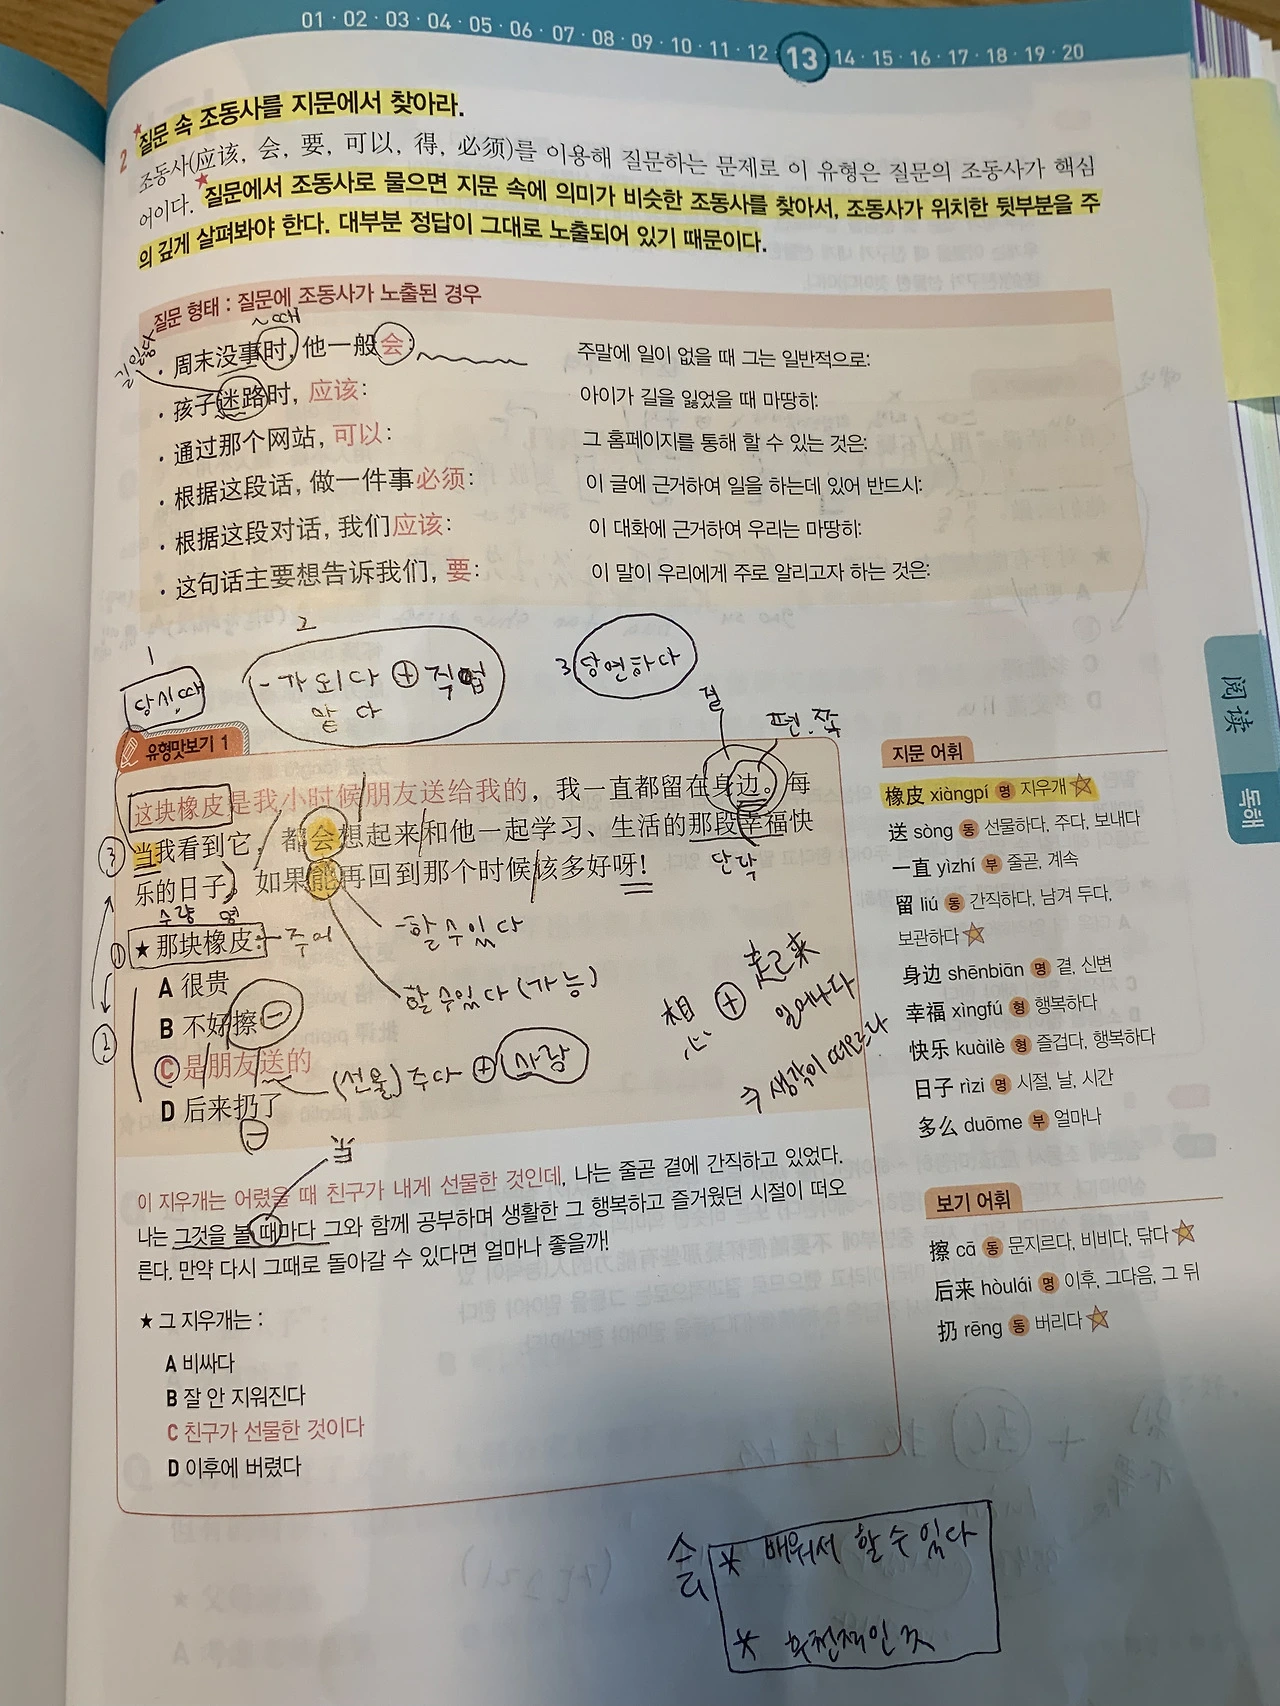 01 · 02 · 03 · 04 · 05 · 06 · 07 · 08 · 09 · 10 · 11 · 12 · 13 · 14 · 15 · 16 · 17 · 18 · 19 · 20
2 질문 속 조동사를 지문에서 찾아라.
조동사(应该, 会, 要, 可以, 得, 必须)를 이용해 질문하는 문제로 이 유형은 질문의 조동사가 핵심
어이다. 질문에서 조동사로 물으면 지문 속에 의미가 비슷한 조동사를 찾아서, 조동사가 위치한 뒷부분을 주
의 깊게 살펴봐야 한다. 대부분 정답이 그대로 노출되어 있기 때문이다.
질문 형태 : 질문에 조동사가 노출된 경우
~때
길잃다
· 周末没事时, 他一般会: 주말에 일이 없을 때 그는 일반적으로:
· 孩子迷路时, 应该: 아이가 길을 잃었을 때 마땅히:
· 通过那个网站, 可以: 그 홈페이지를 통해 할 수 있는 것은:
· 根据这段话, 做一件事必须: 이 글에 근거하여 일을 하는데 있어 반드시:
· 根据这段对话, 我们应该: 이 대화에 근거하여 우리는 마땅히:
· 这句话主要想告诉我们, 要: 이 말이 우리에게 주로 알리고자 하는 것은:
1 당시, 때
2 -가 되다 + 직업
맡다
3 당연하다
곁
편.쪽
유형맛보기 1
这块橡皮是我小时候朋友送给我的, 我一直都留在身边。每
③ 当我看到它, 都会想起来和他一起学习、生活的那段幸福快
단락
乐的日子, 如果能再回到那个时候该多好呀!
수량 명
① ★ 那块橡皮: 주어
-할 수 있다
A 很贵
할 수 있다 (가능)
② B 不好擦
C 是朋友送的
(선물) 주다 + 사람
D 后来扔了
想 + 起来
일어나다
→ 생각이 떠오르다
이 지우개는 어렸을 때 친구가 내게 선물한 것인데, 나는 줄곧 곁에 간직하고 있었다.
나는 그것을 볼 때마다 그와 함께 공부하며 생활한 그 행복하고 즐거웠던 시절이 떠오
른다. 만약 다시 그때로 돌아갈 수 있다면 얼마나 좋을까!
★ 그 지우개는 :
A 비싸다
B 잘 안 지워진다
C 친구가 선물한 것이다
D 이후에 버렸다
지문 어휘
橡皮 xiàngpí 명 지우개
送 sòng 동 선물하다, 주다, 보내다
一直 yìzhí 부 줄곧, 계속
留 liú 동 간직하다, 남겨 두다,
보관하다
身边 shēnbiān 명 곁, 신변
幸福 xìngfú 형 행복하다
快乐 kuàilè 형 즐겁다, 행복하다
日子 rìzi 명 시절, 날, 시간
多么 duōme 부 얼마나
보기 어휘
擦 cā 동 문지르다, 비비다, 닦다
后来 hòulái 명 이후, 그다음, 그 뒤
扔 rēng 동 버리다
阅读 독해
会 * 배워서 할 수 있다
* 후천적인 것